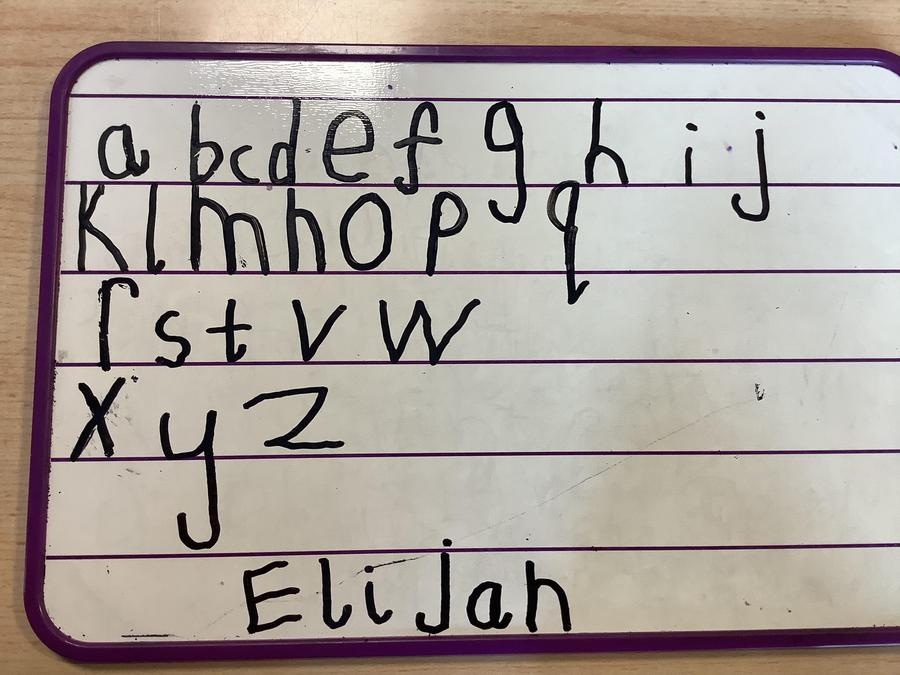 a b c d e f g h i j
k l m n o p q
r s t v w
x y z
Elijah